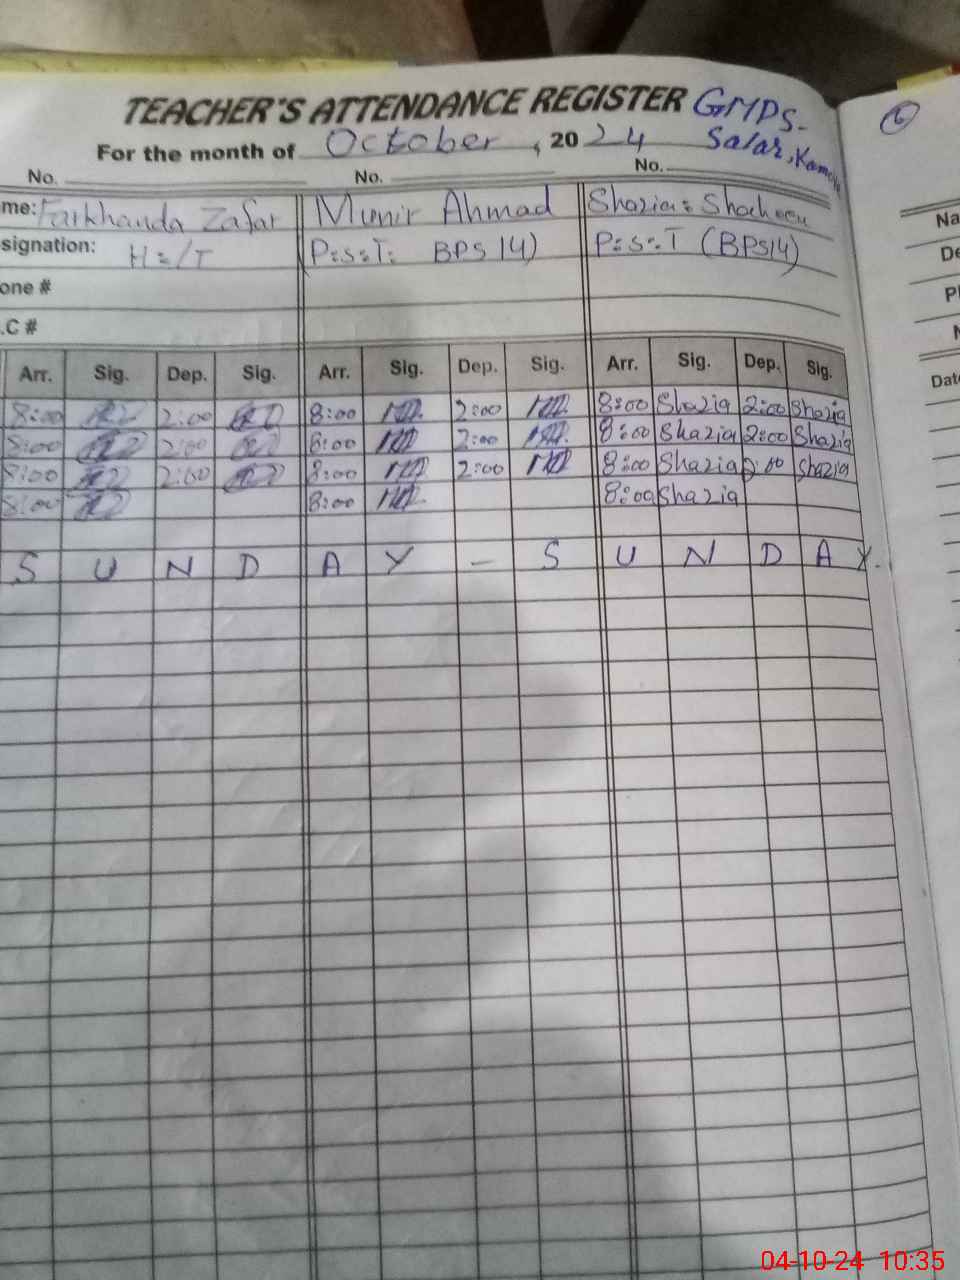 TEACHER'S ATTENDANCE REGISTER GMPS-
For the month of October, 2024 Salar, Kamoke
No. No. No.
me: Farkhanda Zafar Munir Ahmad Shazia: Shaheen
signation: H:/T P:S:T: BPS 14) P:S:T (BPS14)
one #
.C #
Arr. Sig. Dep. Sig. Arr. Sig. Dep. Sig. Arr. Sig. Dep. Sig.
8:00 2:00 8:00 2:00 8:00 Shazia 2:00 Shazia
8:00 2:00 8:00 2:00 8:00 Shazia 2:00 Shazia
8:00 2:00 8:00 2:00 8:00 Shazia 2:00 Shazia
8:00 8:00 8:00 Shazia
S U N D A Y - S U N D A Y.
6
Na
De
Pl
N
Date
04-10-24 10:35